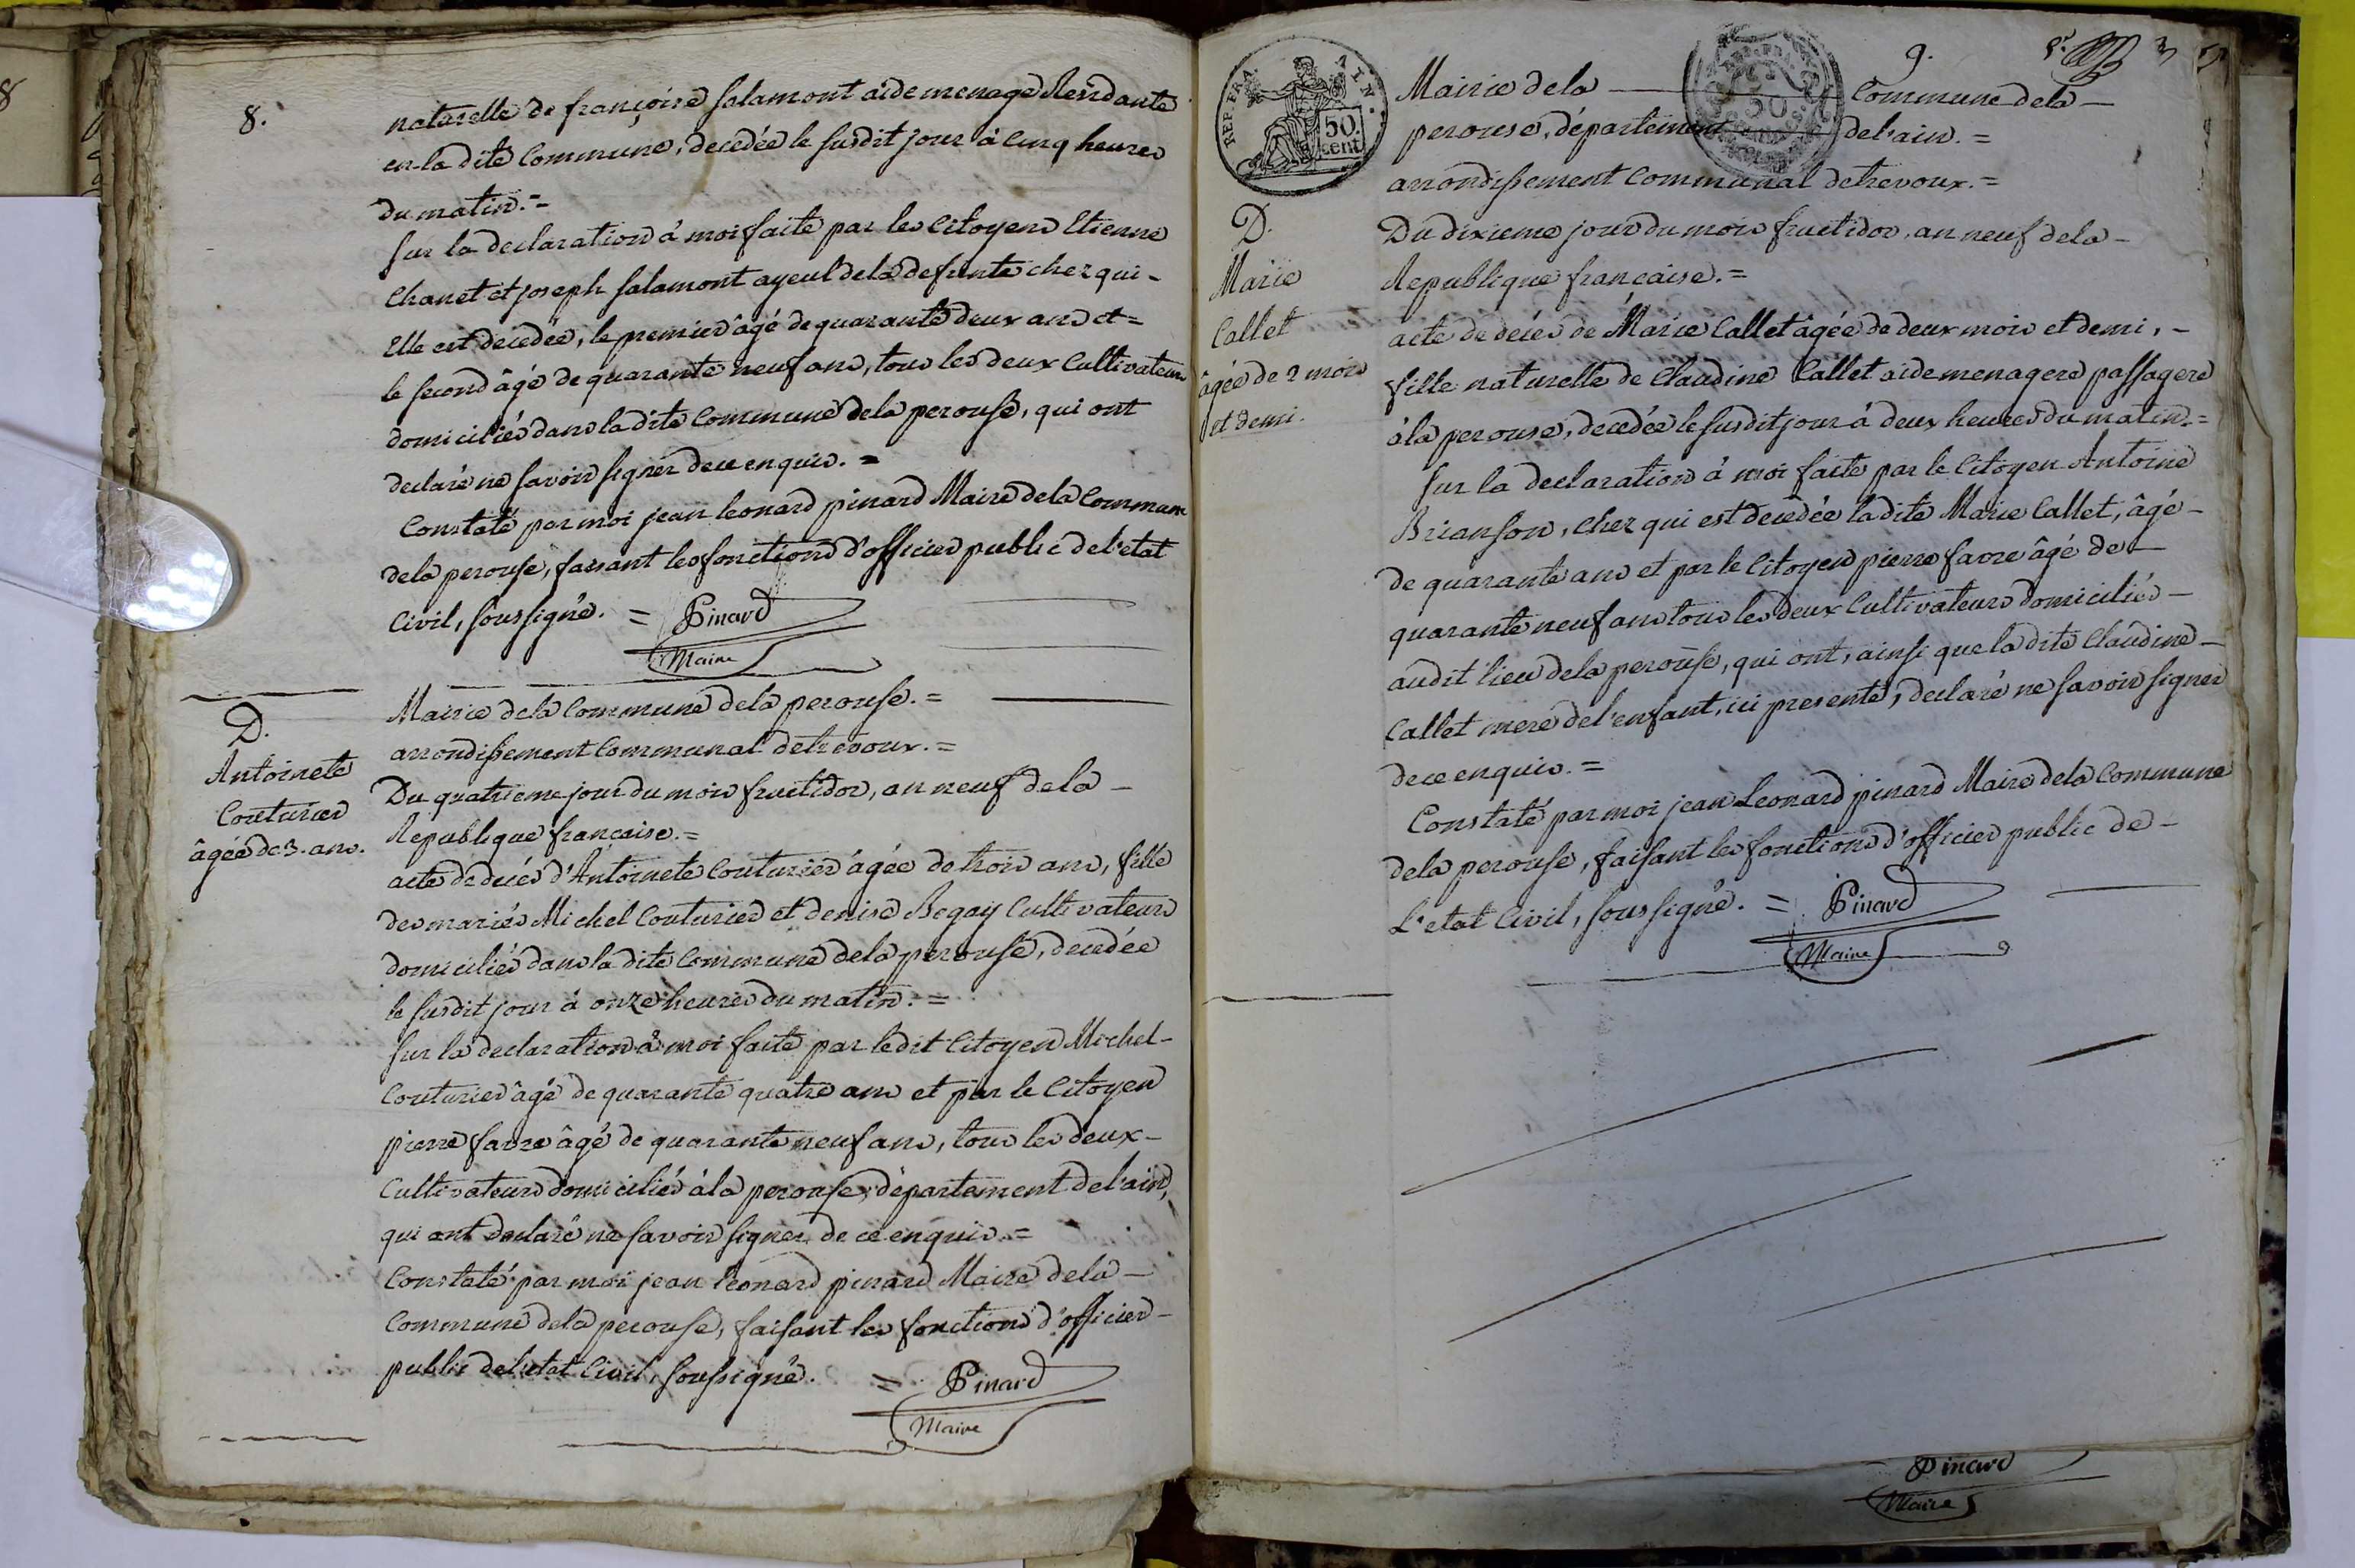 8.
naturelle de françoise salamont aide menage Résidante
en la dite Commune, decedée le susdit jour à Cinq heures
du matin. =
Sur la declaration à moi faite par les Citoyens Etienne
Chanet et joseph salamont ayeul dela defunte chez qui -
Elle est decedée, le premier âgé de quarante deux ans et =
le second âgé de quarante neuf ans, tous les deux Cultivateurs
domiciliés dans la dite Commune dela perouse, qui ont
declaré ne savoir signer de ce enquis. =
Constaté par moi jean leonard pinard Maire dela Commune
dela perouse, faisant les fonctions d'officier public de l'etat
Civil, soussigné. = Pinard
Maire
D.
Antoinete
Couturier
âgée de 3. ans.
Mairie dela Commune dela perouse. =
arrondissement Communal detrevoux. =
Du quatrieme jour du mois fructidor, an neuf dela -
Republique française. =
acte de decés d'Antoinete Couturier âgée de trois ans, fille
des mariés Michel Couturier et denise Begay Cultivateurs
domiciliés dans la dite Commune dela perouse, decedée
le susdit jour à onze heures du matin. =
Sur la declaration à moi faite par ledit Citoyen Michel -
Couturier âgé de quarante quatre ans et par le Citoyen
pierre favre âgé de quarante neuf ans, tous les deux -
Cultivateurs domiciliés à la perouse, département de l'ain,
qui ont declaré ne savoir signer de ce enquis. =
Constaté par moi jean leonard pinard Maire dela -
Commune dela perouse, faisant les fonctions d'officier -
public de l'etat Civil, soussigné. = Pinard
Maire
9.
REP. FRA. 
50.
cent
Mairie dela — Commune dela —
perouse, département de l'ain. =
arrondissement Communal detrevoux. =
D.
Marie
Callet
âgée de 2 mois
et demi.
Du dixieme jour du mois fructidor, an neuf dela -
Republique française. =
acte de decés de Marie Callet âgée de deux mois et demi, -
fille naturelle de Claudine Callet aide menagere passagere
à la perouse, decedée le susdit jour à deux heures du matin. =
Sur la declaration à moi faite par le Citoyen Antoine
Brianson, chez qui est decedée ladite Marie Callet, âgé -
de quarante ans et par le Citoyen pierre favre âgé de —
quarante neuf ans tous les deux Cultivateurs domiciliés -
audit lieu dela perouse, qui ont, ainsi que la dite Claudine -
Callet mere de l'enfant, ici presente, declaré ne savoir signer
de ce enquis. =
Constaté par moi jean Leonard pinard Maire dela Commune
dela perouse, faisant les fonctions d'officier public de -
L'etat Civil, soussigné. = Pinard
Maire
Pinard
Maire